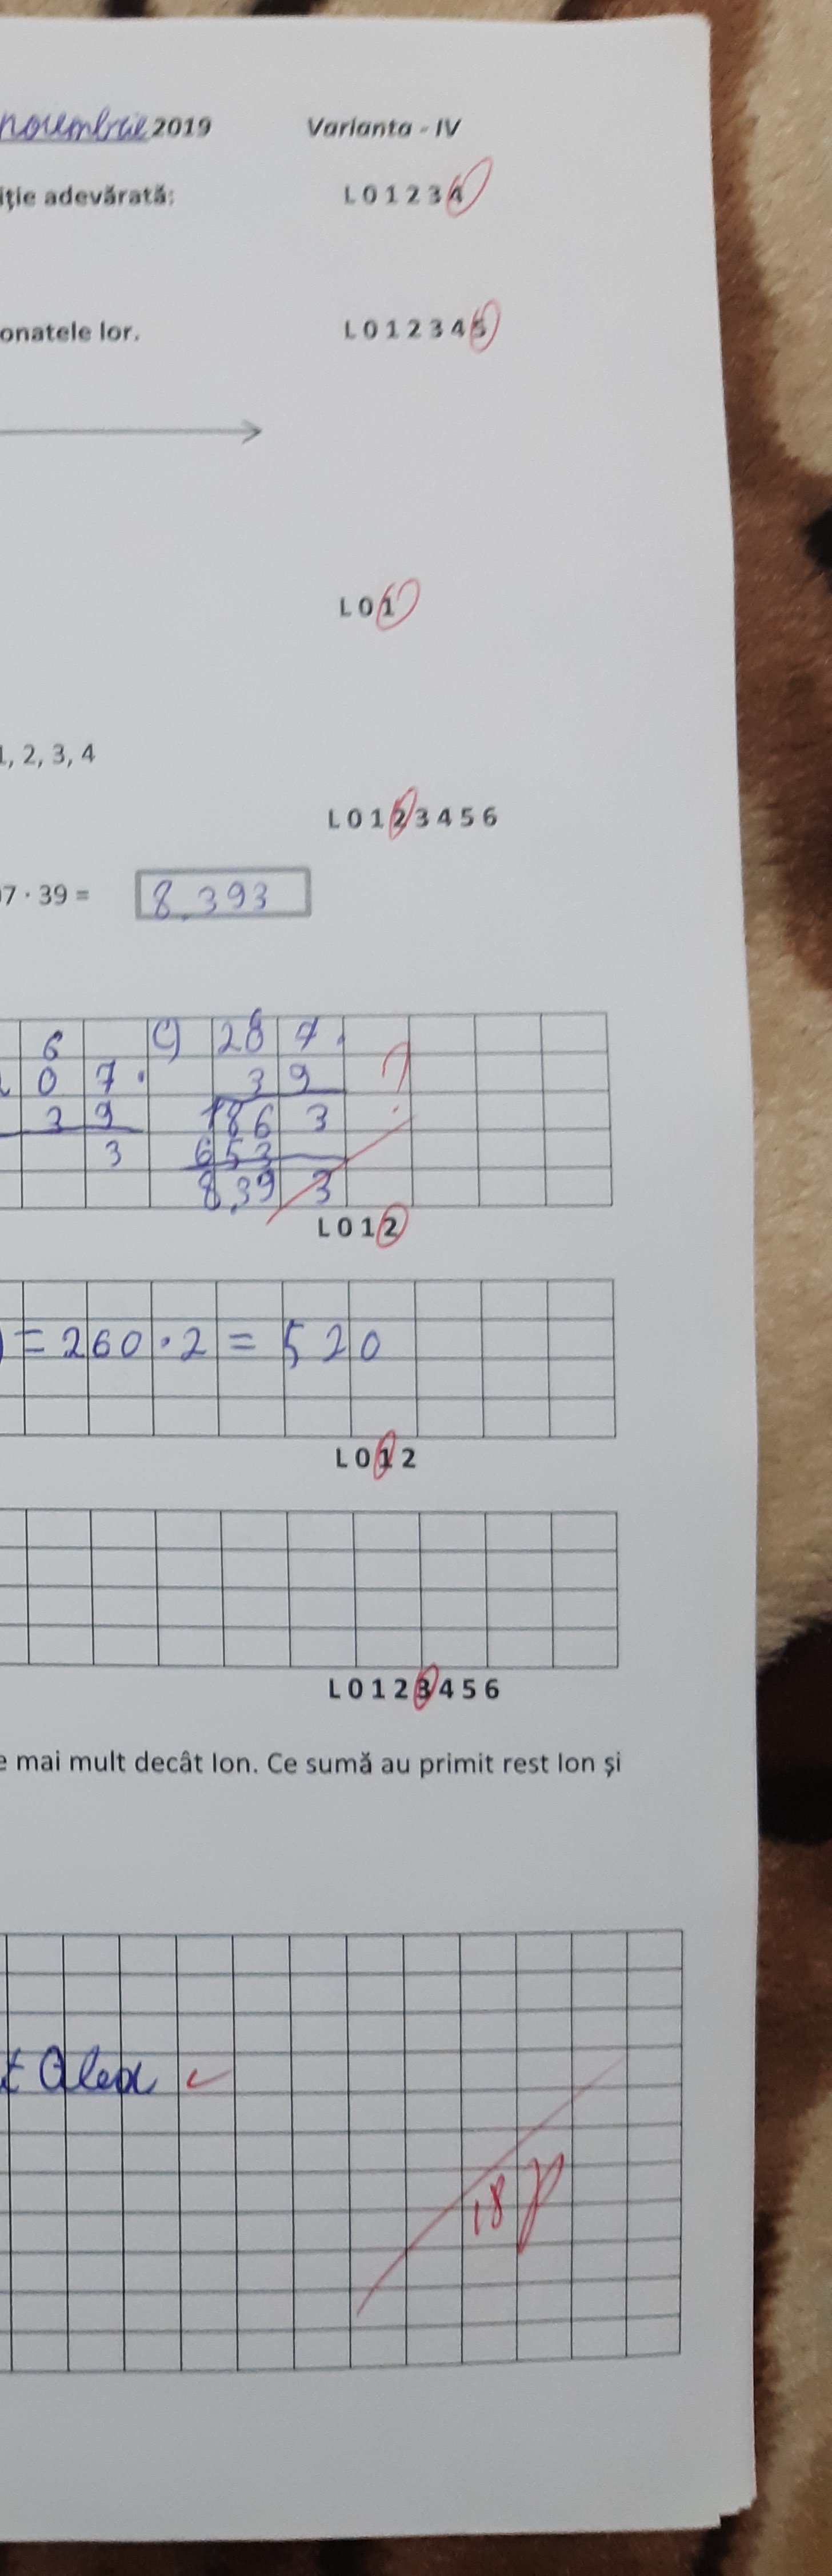 noiembrie 2019 Varianta - IV
iție adevărată: L 0 1 2 3 4
onatele lor. L 0 1 2 3 4 5
L 0 1
1, 2, 3, 4
L 0 1 2 3 4 5 6
07 · 39 = 8.393
6 c) 28 7 ·
0 7 · 3 9
3 9 186 3
3 653
8,39 3
L 0 1 2
) = 260 · 2 = 520
L 0 1 2
L 0 1 2 3 4 5 6
e mai mult decât Ion. Ce sumă au primit rest Ion și
t Alex
18 p